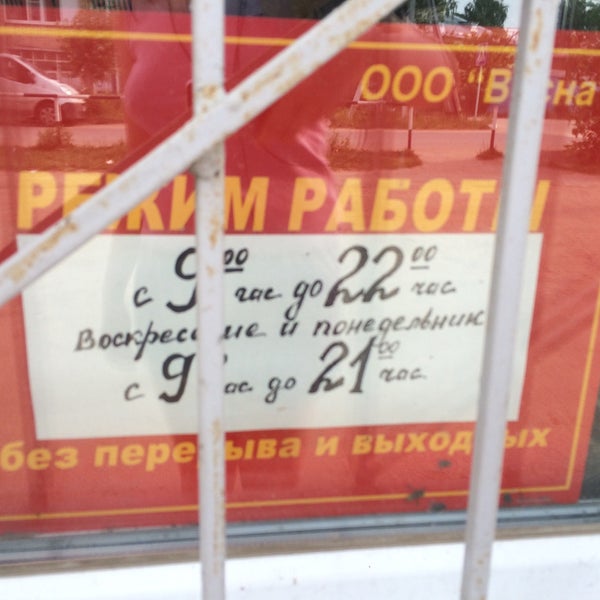 ООО "Весна
РЕЖИМ РАБОТЫ
с 9 00 час до 22 00 час
Воскресение и понедельник
с 9 00 час до 21 00 час
без перерыва и выходных